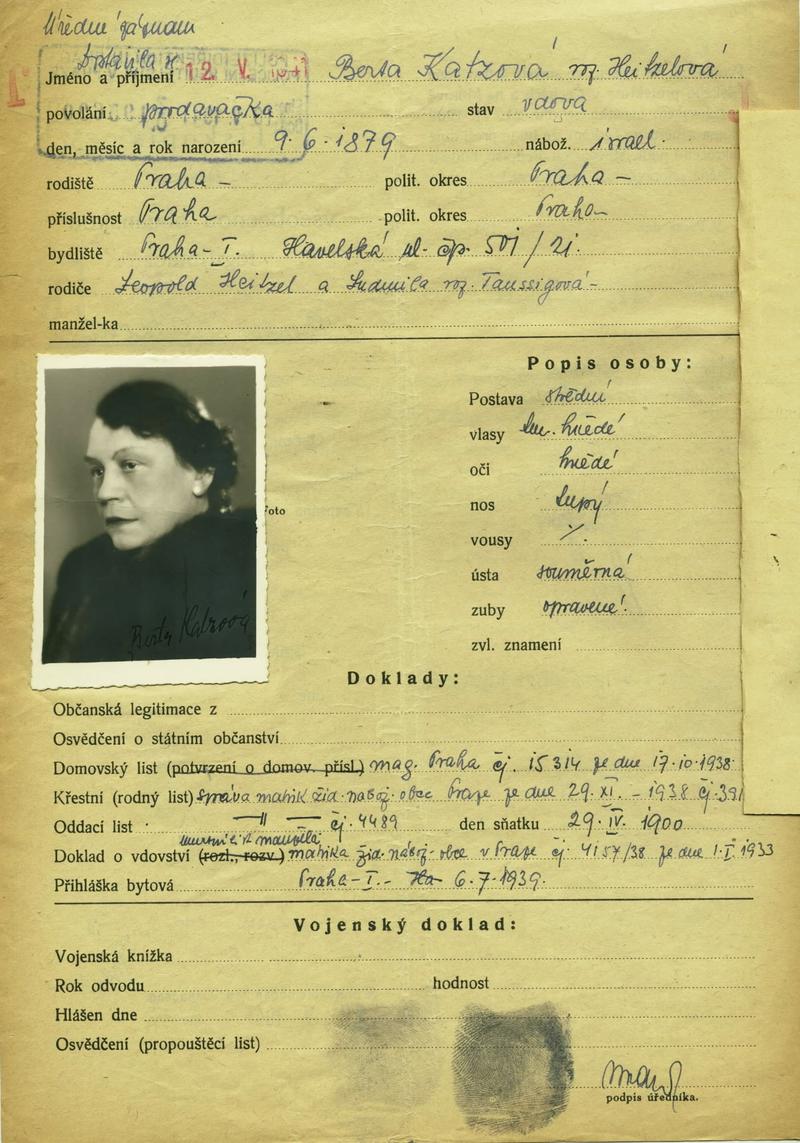 Úřední záznam
Dostavila se
Jméno a příjmení 12. V. 1941 Berta Katzová roz. Heitzelová
povolání prodavačka stav vdova
den, měsíc a rok narození 9.6.1879 nábož. israel.
rodiště Praha – polit. okres Praha –
příslušnost Praha polit. okres Praha
bydliště Praha – I. Havelská ul. čp. 501/21.
rodiče Leopold Heitzel a Ludmila roz. Taussigová –
manžel-ka
Popis osoby:
Postava střední
vlasy tm. hnědé
oči hnědé
foto
nos tupý
vousy ·/.
ústa souměrná
zuby opravené.
zvl. znamení
Berta Katzová
Doklady:
Občanská legitimace z
Osvědčení o státním občanství
Domovský list (potvrzení o domov. přísl.) mag. Praha čj. 15314 ze dne 17.10.1938
Křestní (rodný list) Správa matrik žid. nábož. obec Praze ze dne 29. XI. – 1938 čj. 391
Oddací list –"– čj. 4489 den sňatku 29. IV. 1900
úmrtní list manžela
Doklad o vdovství (rozl., rozv.) matrika žid. nábož. obce v Praze čj. 4157/38 ze dne 1.I.1933
Přihláška bytová Praha – I. – 6.7.1939.
Vojenský doklad:
Vojenská knížka
Rok odvodu hodnost
Hlášen dne
Osvědčení (propouštěcí list)
podpis úředníka.